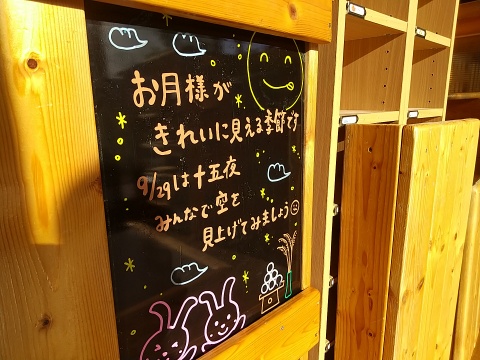 お月様が
きれいに見える季節です
9/29は十五夜
みんなで空を
見上げてみましょう